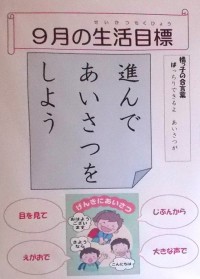 せいかつもくひょう
9月の生活目標
桃っ子の合言葉
ばっちりできるよ あいさつが
進んで
あいさつを
しよう
げんきにあいさつ
おはよう
ござい
ます
さよう
なら
こんにちは
目を見て
じぶんから
えがおで
大きな声で